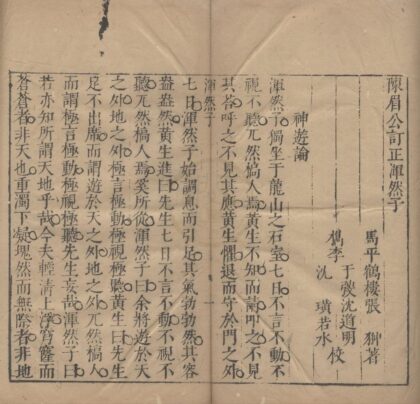 陳眉公訂正渾然子
馬平鶴樓張 翀著
于燓沈道明
檇李 校
沈 璜若水
神遊論
渾然子獨坐于龍山之石室七日不言不動不
視不聽兀然槁人焉黃生不知而謁叩之不見
其荅呼之不見其應黃生懼退而守於門之外
渾然子
一
七日渾然子始調息而引足其氣勃勃然其容
盎盎然黃生進曰先生七日不言不動不視不
聽兀然槁人焉奚所從渾然子曰余將遊於天
之外地之外極言極動極視極聽黃生曰先生
足不出席而謂遊於天之外地之外兀然槁人
而謂極言極動極視極聽先生妄哉渾然子曰
若亦知所謂天地乎哉今夫輕清上浮穹窿而
蒼蒼者非天也重濁下凝塊然而無際者非地